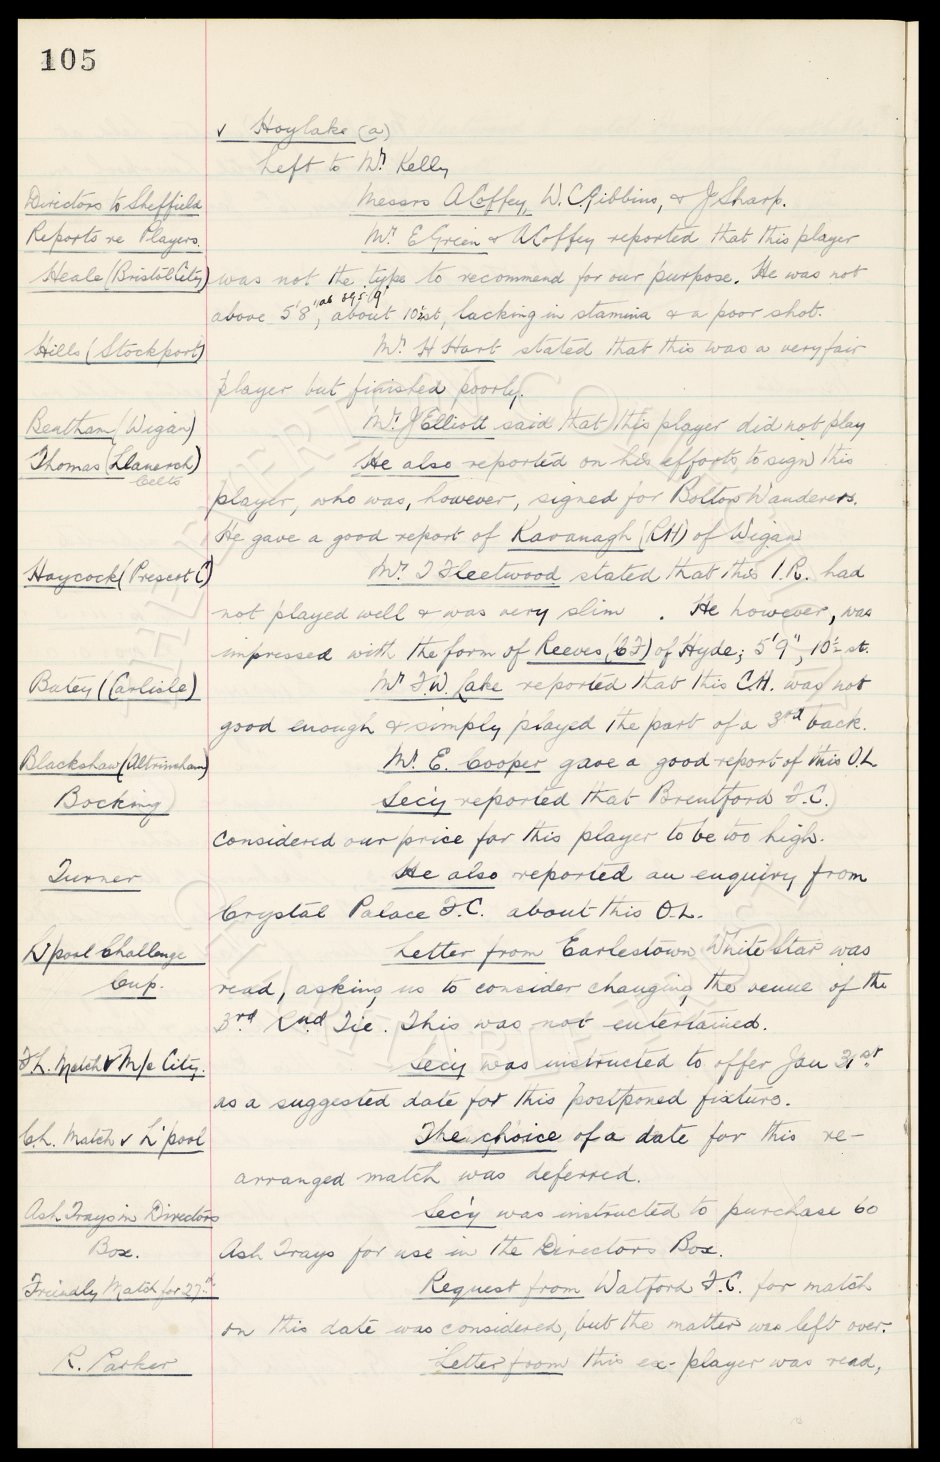 105
v Hoylake (a)
Left to Mr Kelly
Directors to Sheffield Messrs A Coffey, W.C. Gibbins, & J Sharp.
Reports re Players. Mr E Green & A Coffey reported that this player
Heale (Bristol City) was not the type to recommend for our purpose. He was not
above 5'8", about 10½st, lacking in stamina & a poor shot.
Hills (Stockport) Mr H Hart stated that this was a very fair
player but finished poorly.
Bentham (Wigan) Mr J Elliott said that this player did not play
Thomas (Llanerch) He also reported on his efforts to sign this
Celts
player, who was, however, signed for Bolton Wanderers.
He gave a good report of Kavanagh (RH) of Wigan
Haycock (Prescot C) Mr T Fleetwood stated that this I.R. had
not played well & was very slim. He however, was
impressed with the form of Reeves (CF) of Hyde; 5'9", 10½ st.
Batey (Carlisle) Mr F.W. Lake reported that this C.H. was not
good enough & simply played the part of a 3rd back.
Blackshaw (Altrincham) Mr. E. Cooper gave a good report of this O.L
Bocking Secy reported that Brentford F.C.
considered our price for this player to be too high.
Turner He also reported an enquiry from
Crystal Palace F.C. about this O.L.
L'pool Challenge Letter from Earlestown White Star was
Cup. read, asking us to consider changing the venue of the
3rd Rnd Tie. This was not entertained.
F.L. Match v M/c City. Secy was instructed to offer Jan 31st
as a suggested date for this postponed fixture.
C.L. Match v L'pool The choice of a date for this re-
arranged match was deferred.
Ash Trays in Directors Secy was instructed to purchase 60
Box. Ash Trays for use in the Directors Box.
Friendly Match for 27th Request from Watford F.C. for match
on this date was considered, but the matter was left over.
R. Parker Letter from this ex-player was read,